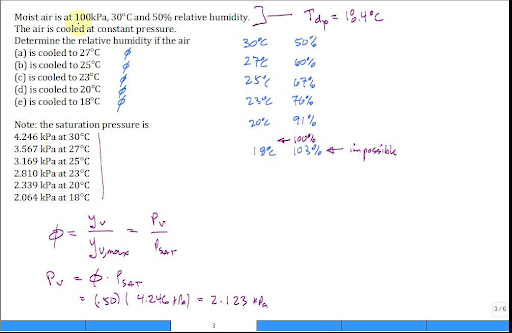 Moist air is at 100kPa, 30°C and 50% relative humidity.
The air is cooled at constant pressure.
Determine the relative humidity if the air
(a) is cooled to 27°C ϕ
(b) is cooled to 25°C ϕ
(c) is cooled to 23°C ϕ
(d) is cooled to 20°C ϕ
(e) is cooled to 18°C ϕ
Note: the saturation pressure is
4.246 kPa at 30°C
3.567 kPa at 27°C
3.169 kPa at 25°C
2.810 kPa at 23°C
2.339 kPa at 20°C
2.064 kPa at 18°C
ϕ = yv / yv,max = Pv / PSAT
Pv = ϕ · PSAT
= (.50)(4.246 kPa) = 2.123 kPa
30°C 50%
27°C 60%
25°C 67%
23°C 76%
20°C 91%
← 100%
18°C 103% ← impossible
3
3/6